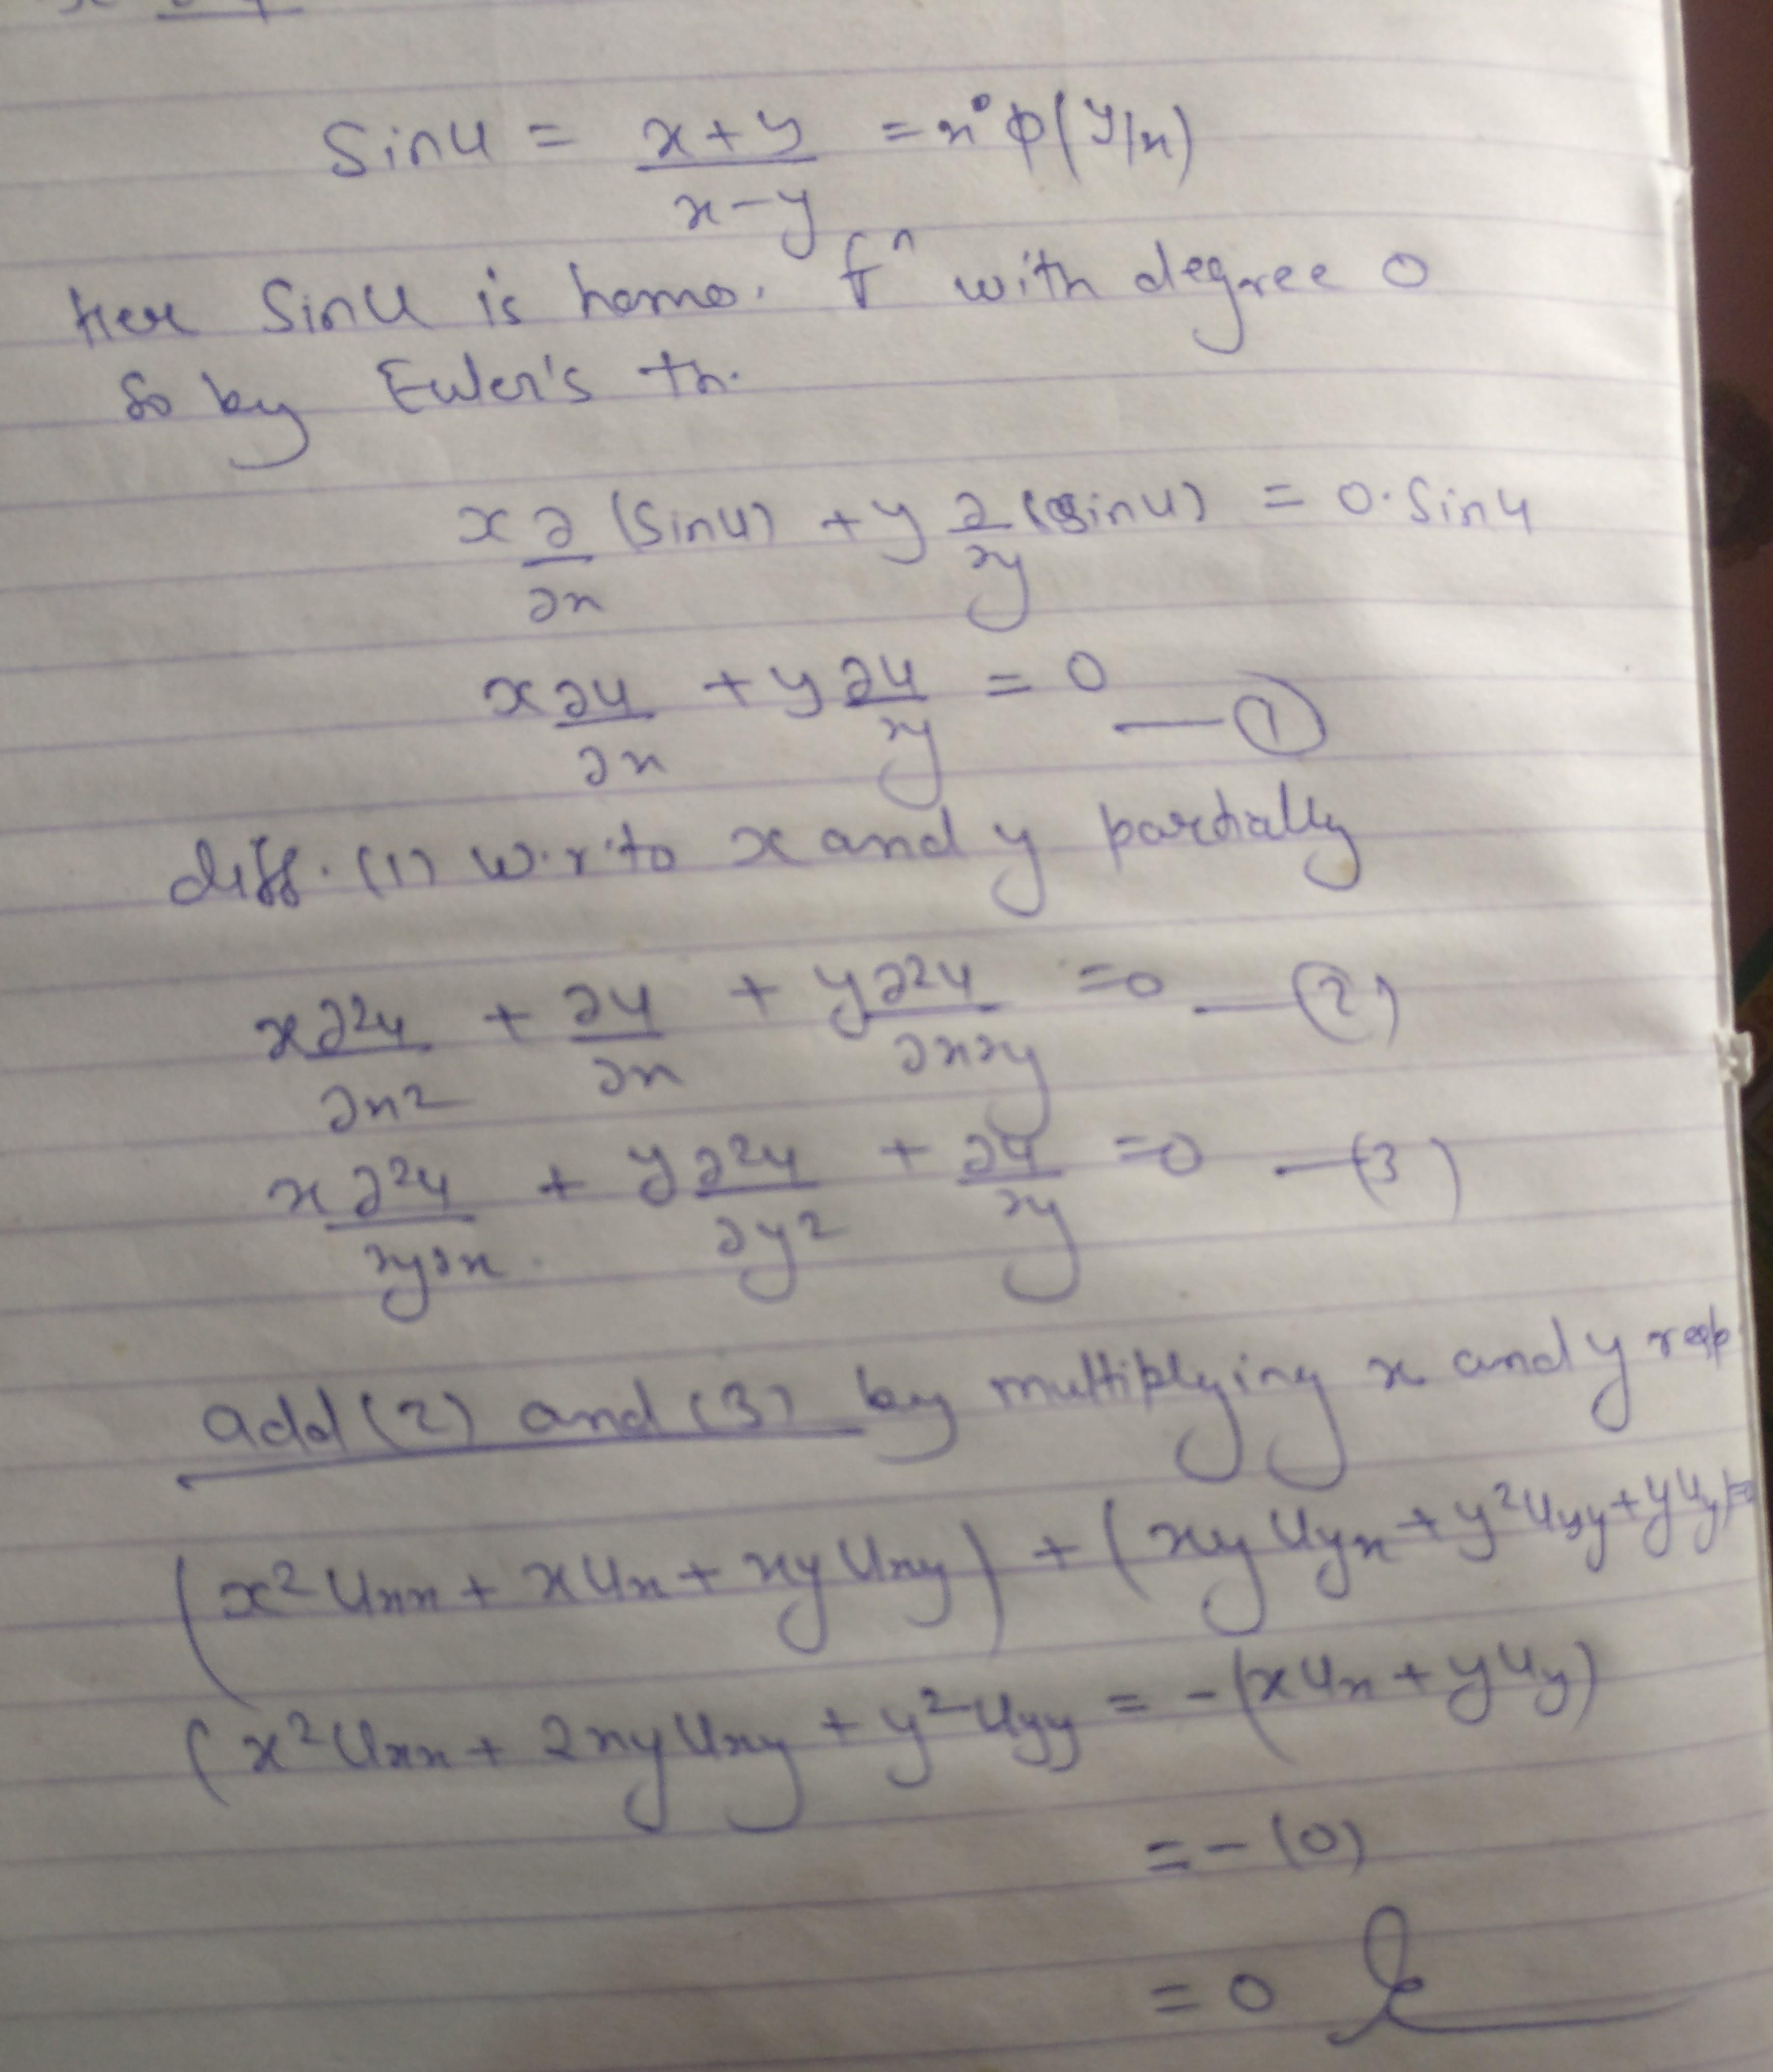 Sinu = x+y / x-y = x⁰ φ(y/x)
Here Sinu is homo. fⁿ with degree 0
So by Euler's th.
x ∂/∂x (Sinu) + y ∂/∂y (Sinu) = 0·Sinu
x ∂u/∂x + y ∂u/∂y = 0 — ①
diff. (1) w.r.to x and y partially
x ∂²u/∂x² + ∂u/∂x + y ∂²u/∂x∂y = 0 — (2)
x ∂²u/∂y∂x + y ∂²u/∂y² + ∂u/∂y = 0 — (3)
add (2) and (3) by multiplying x and y resp
(x² uxx + x ux + xy uxy) + (xy uyx + y² uyy + y uy) = 0
(x² uxx + 2xy uxy + y² uyy = -(x ux + y uy)
= -(0)
= 0